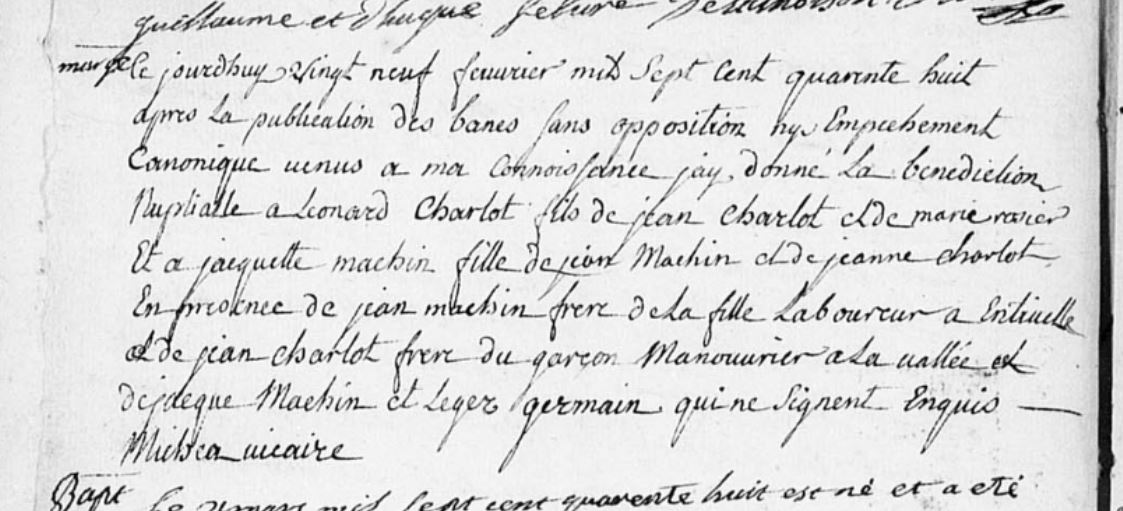 guillaume et d'hugue
mariage Ce jourdhuy vingt neuf feuvrier mil Sept Cent quarente huit
apres La publication des bancs sans opposition ny Empechement
Canonique venus a ma Connoissance jay donné La benediction
Nuptialle a Leonard Charlot fils de jean Charlot et de marie rosier
Et a jacquette machin fille de jean Machin et de jeanne charlot
En presence de jean machin frere de La fille Laboureur a Entivelle
et de jean charlot frere du garçon Manouvrier a La vallée et
de jacque Machin et Leger germain qui ne Signent Enquis
vicaire
Bapt Le mars mil Sept cent quarente huit est né et a eté